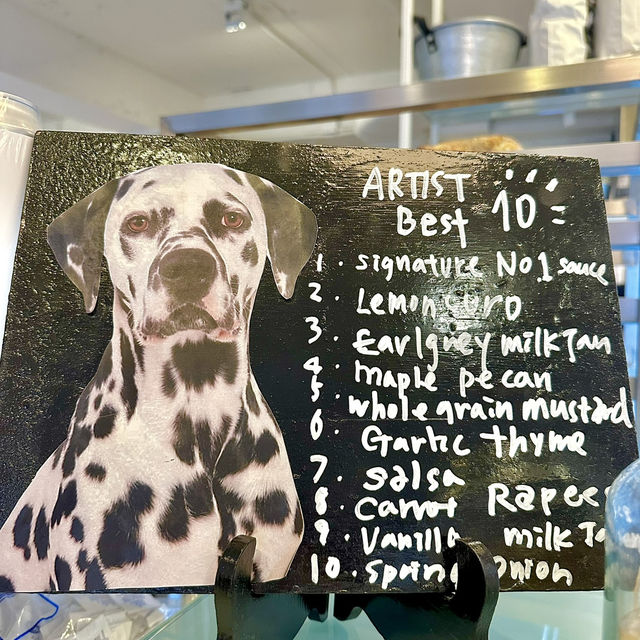 ARTIST
Best 10
1. signature No1 sauce
2. Lemon
3. Earlgrey milk Jam
4. maple pecan
5. whole grain mustard
6. Garlic thyme
7. salsa
8. Carrot
9. Vanilla milk
10. onion